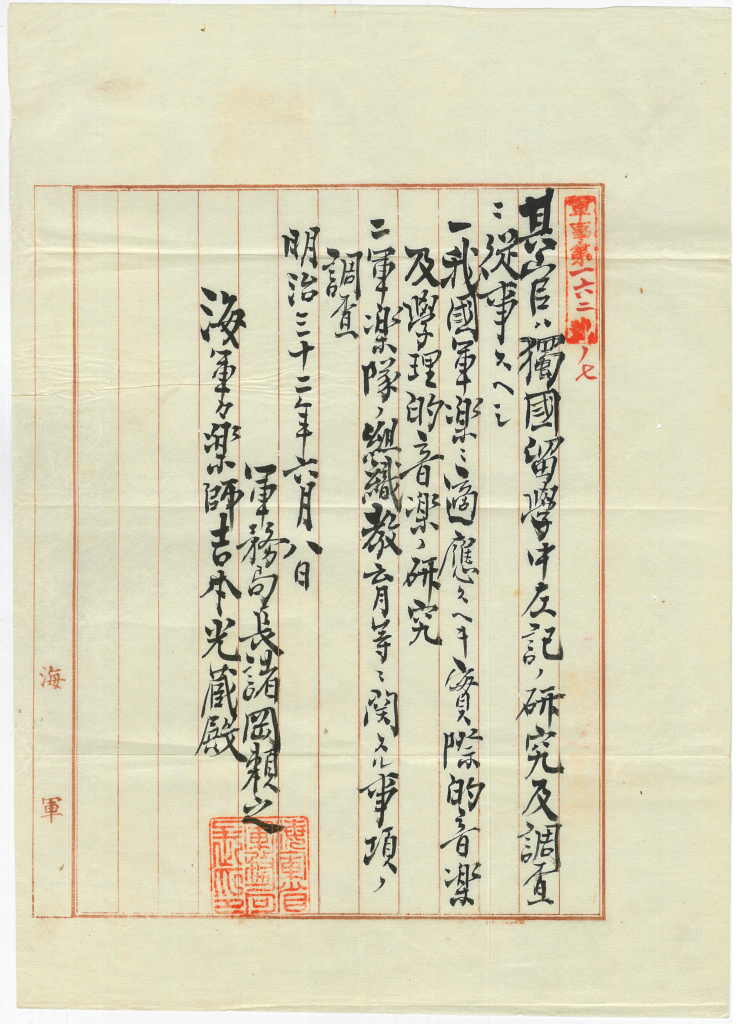 軍事第一六二號ノ七
其官ハ獨國留學中左記ノ研究及調査
ニ從事スヘシ
一我國軍樂ニ適應スヘキ實際的音楽
及學理的音楽ノ研究
二軍楽隊ノ組織教育等ニ関スル事項ノ
調査
明治三十二年六月八日
軍務局長諸岡頼之
海軍々楽師吉本光蔵殿
海軍省軍務局長之印
海軍